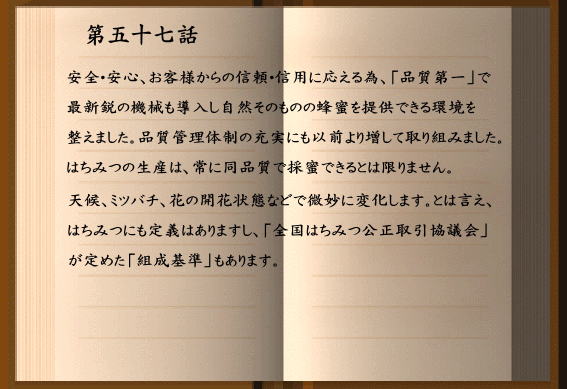 第五十七話
安全・安心、お客様からの信頼・信用に応える為、「品質第一」で
最新鋭の機械も導入し自然そのものの蜂蜜を提供できる環境を
整えました。品質管理体制の充実にも以前より増して取り組みました。
はちみつの生産は、常に同品質で採蜜できるとは限りません。
天候、ミツバチ、花の開花状態などで微妙に変化します。とは言え、
はちみつにも定義はありますし、「全国はちみつ公正取引協議会」
が定めた「組成基準」もあります。